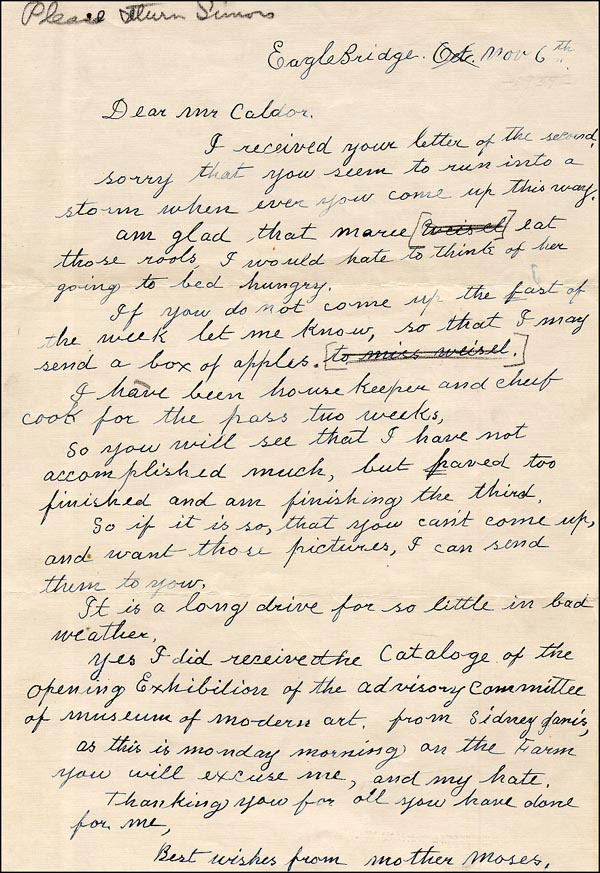 Please return Simors
Eagle Bridge. Oct. Nov 6th
Dear Mr Caldor.
I received your letter of the second,
sorry that you seem to run into a
storm when ever you come up this way.
am glad that maree [Weisel] eat
those roots, I would hate to think of her
going to bed hungry.
If you do not come up the fast of
the week let me know, so that I may
send a box of apples. [to miss weisel.]
I have been house keeper and cheef
cook for the pass two weeks,
So you will see that I have not
accomplished much, but have too
finished and am finishing the third.
So if it is so, that you can't come up,
and want those pictures, I can send
them to you.
It is a long drive for so little in bad
weather,
yes I did receive the Cataloge of the
opening Exhibition of the advisory committee
of museum of modern art. from Sidney Janis,
as this is monday morning on the Farm
you will excuse me, and my hate.
Thanking you for all you have done
for me,
Best wishes from mother Moses.